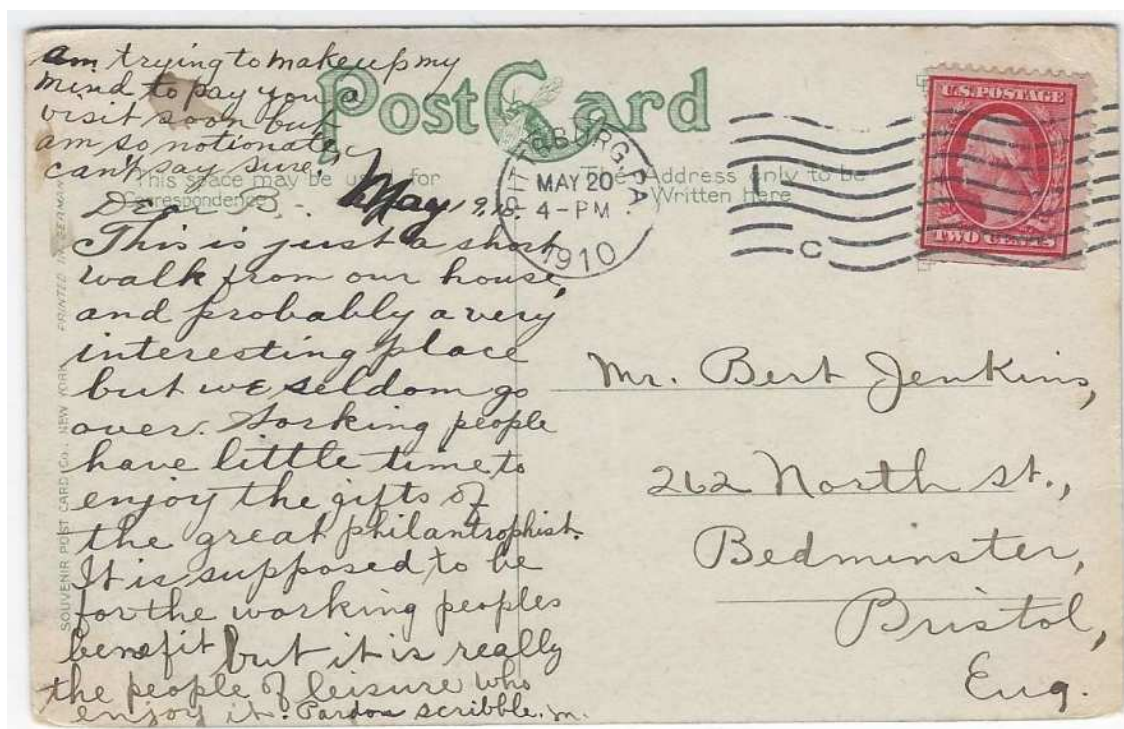 am trying to make up my
mind to pay you a
visit soon but
am so notionate
can't say sure.
Post Card
This space may be used for
Correspondence
The Address only to be
Written here
PITTSBURG, PA.
MAY 20
4-PM
1910
C
U.S. POSTAGE
TWO CENTS
Dear B. May 19.10.
This is just a short
walk from our house,
and probably a very
interesting place
but we seldom go
over. Working people
have little time to
enjoy the gifts of
the great philantrophist.
It is supposed to be
for the working peoples
benefit but it is really
the people of leisure who
enjoy it. Pardon scribble. M.
Mr. Bert Jenkins,
262 North St.,
Bedminster,
Bristol,
Eng.
SOUVENIR POST CARD CO., NEW YORK. PRINTED IN GERMANY